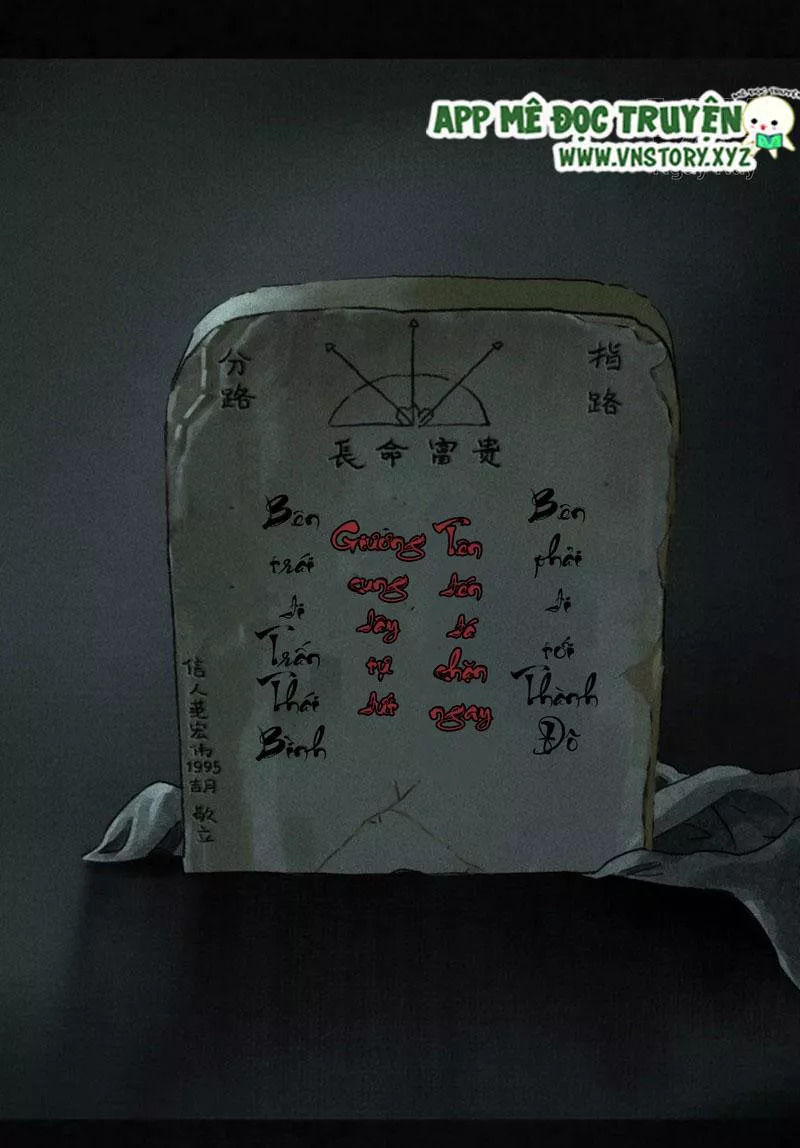 MÊ ĐỌC TRUYỆN
APP MÊ ĐỌC TRUYỆN
WWW.VNSTORY.XYZ
分路
指路
長命富貴
Bên trái đi Trấn Thái Bình
Giương cung dây tự đứt
Tên đến đá chặn ngay
Bên phải đi tới Thành Đô
信人 宏偉 1995 胡 敬立